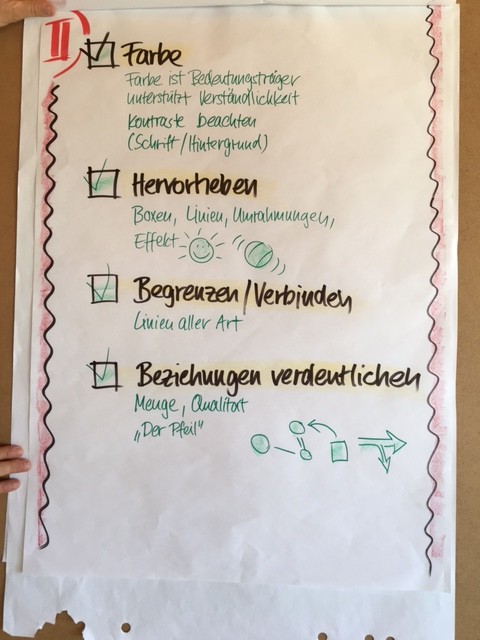 II
Farbe
Farbe ist Bedeutungsträger
unterstützt Verständlichkeit
Kontraste beachten
(Schrift/Hintergrund)
Hervorheben
Boxen, Linien, Umrahmungen,
Effekt
Begrenzen/Verbinden
Linien aller Art
Beziehungen verdeutlichen
Menge, Qualität
„Der Pfeil"